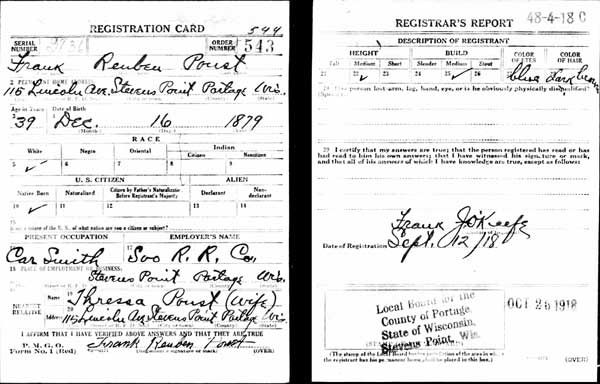 REGISTRATION CARD 544
SERIAL NUMBER
ORDER NUMBER 543
Frank Reuben Poust
2 PERMANENT HOME ADDRESS:
115 Lincoln Ave. Stevens Point Portage Wis.
Age in Years Date of Birth
39 Dec. 16 1879
(Month.) (Day.) (Year.)
RACE
White Negro Oriental Indian
Citizen Noncitizen
5 ✓ 6 7 8 9
U. S. CITIZEN ALIEN
Native Born Naturalized Citizen by Father's Naturalization Before Registrant's Majority Declarant Non-declarant
10 ✓ 11 12 13 14
15
If not a citizen of the U. S., of what nation are you a citizen or subject?
PRESENT OCCUPATION EMPLOYER'S NAME
16 17
Car Smith Soo R. R. Co.
18 PLACE OF EMPLOYMENT OR BUSINESS:
Stevens Point Portage Wis.
NEAREST RELATIVE
Name 19 Thressa Poust (Wife)
Address 20 115 Lincoln Ave Stevens Point Portage Wis.
I AFFIRM THAT I HAVE VERIFIED ABOVE ANSWERS AND THAT THEY ARE TRUE
P. M. G. O.
Form No. 1 (Red) Frank Reuben Poust
(Registrant's signature or mark) (OVER)
REGISTRAR'S REPORT 48-4-18 C
DESCRIPTION OF REGISTRANT
HEIGHT BUILD COLOR OF EYES COLOR OF HAIR
Tall Medium Short Slender Medium Stout
21 22 ✓ 23 24 25 ✓ 26 27 blue dark brown
29 Has person lost arm, leg, hand, eye, or is he obviously physically disqualified?
(Specify.)
30 I certify that my answers are true; that the person registered has read or has
had read to him his own answers; that I have witnessed his signature or mark,
and that all of his answers of which I have knowledge are true, except as follows:
Frank J. O'Keefe
Date of Registration Sept. 12/18
Local Board for the
County of Portage,
State of Wisconsin,
Stevens Point, Wis.
OCT 26 1918
(The stamp of the Local Board having jurisdiction of the area in which
the registrant has his permanent home shall be placed in this box.)
(OVER)